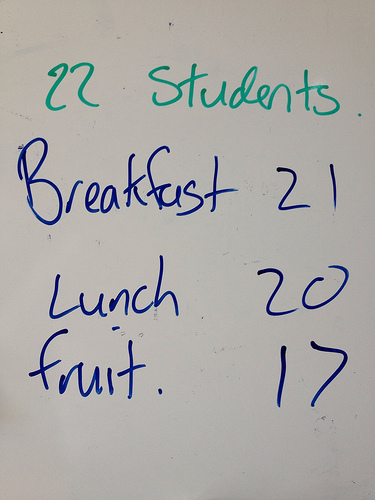 22 Students.
Breakfast 21
Lunch 20
fruit. 17